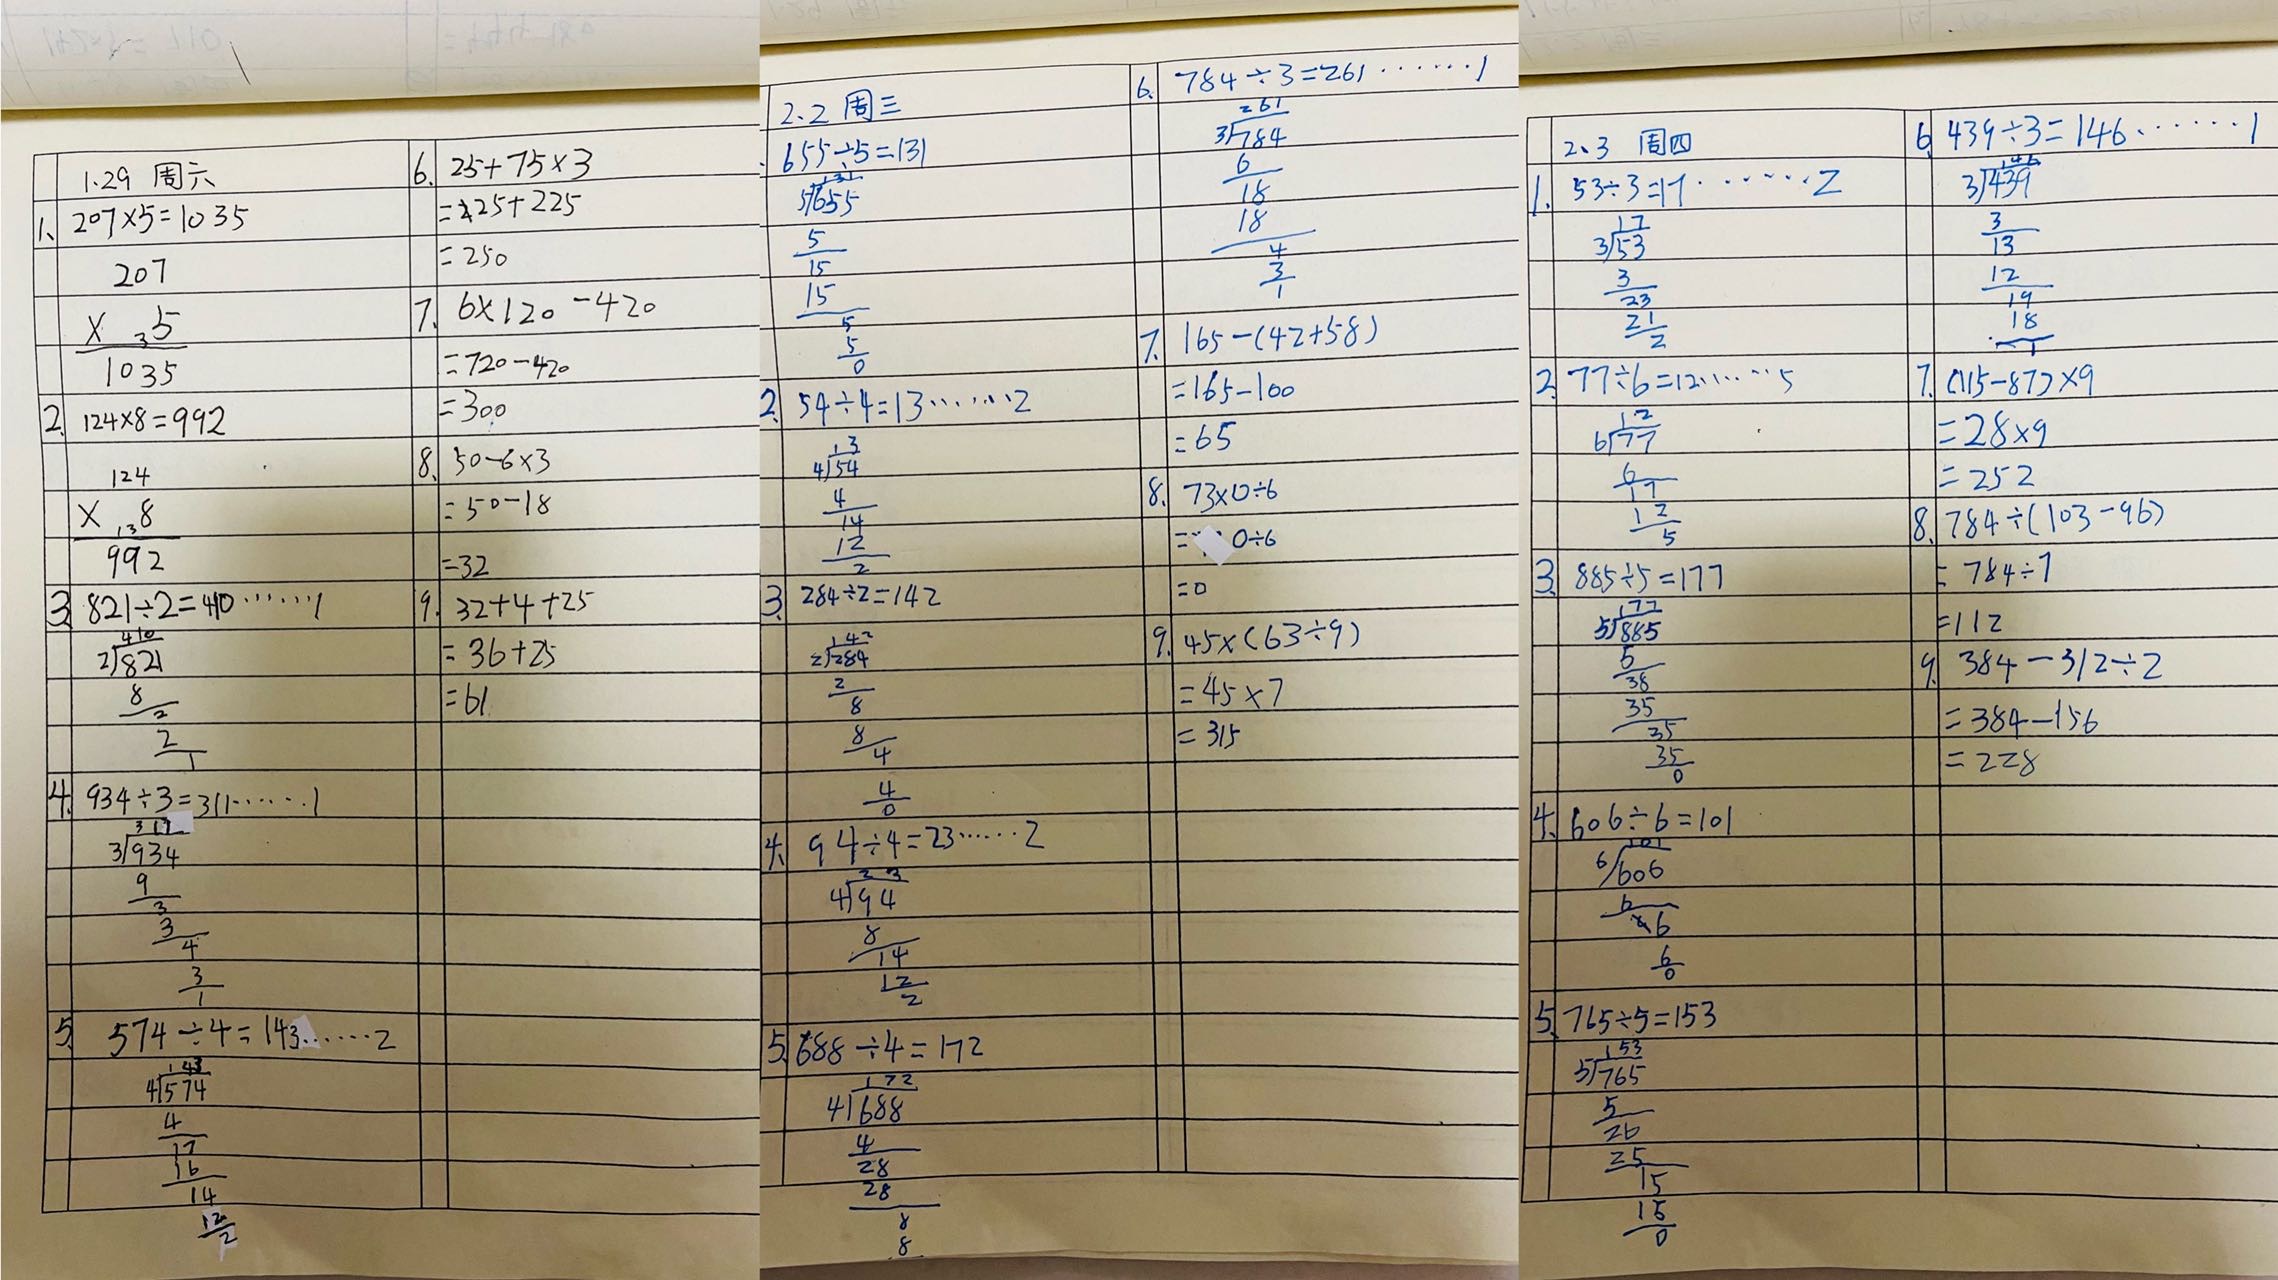 1.29 周六
1、 207×5=1035
207
× ₃5
1035
2、 124×8=992
124
× ₁₃8
992
3、 821÷2=410……1
410
2/821
8
2
2
1
4、 934÷3=311……1
311
3/934
9
3
3
4
3
1
5、 574÷4=143……2
143
4/574
4
17
16
14
12
2
6、 25+75×3
=25+225
=250
7、 6×120-420
=720-420
=300
8、 50-6×3
=50-18
=32
9、 32+4+25
=36+25
=61
2、2 周三
655÷5=131
131
5/655
5
15
15
5
5
0
2、 54÷4=13……2
13
4/54
4
14
12
2
3、 284÷2=142
142
2/284
2
8
8
4
4
0
4、 94÷4=23……2
23
4/94
8
14
12
2
5、 688÷4=172
172
4/688
4
28
28
8
8
6、 784÷3=261……1
261
3/784
6
18
18
4
3
1
7、 165-(42+58)
=165-100
=65
8、 73×0÷6
= 0÷6
=0
9、 45×(63÷9)
=45×7
=315
2、3 周四
1、 53÷3=17……2
17
3/53
3
23
21
2
2、 77÷6=12……5
12
6/77
6
17
12
5
3、 885÷5=177
177
5/885
5
38
35
35
35
0
4、 606÷6=101
101
6/606
6
6
6
0
5、 765÷5=153
153
5/765
5
26
25
15
15
0
6、 439÷3=146……1
146
3/439
3
13
12
19
18
1
7、 (115-87)×9
=28×9
=252
8、 784÷(103-96)
=784÷7
=112
9、 384-312÷2
=384-156
=228